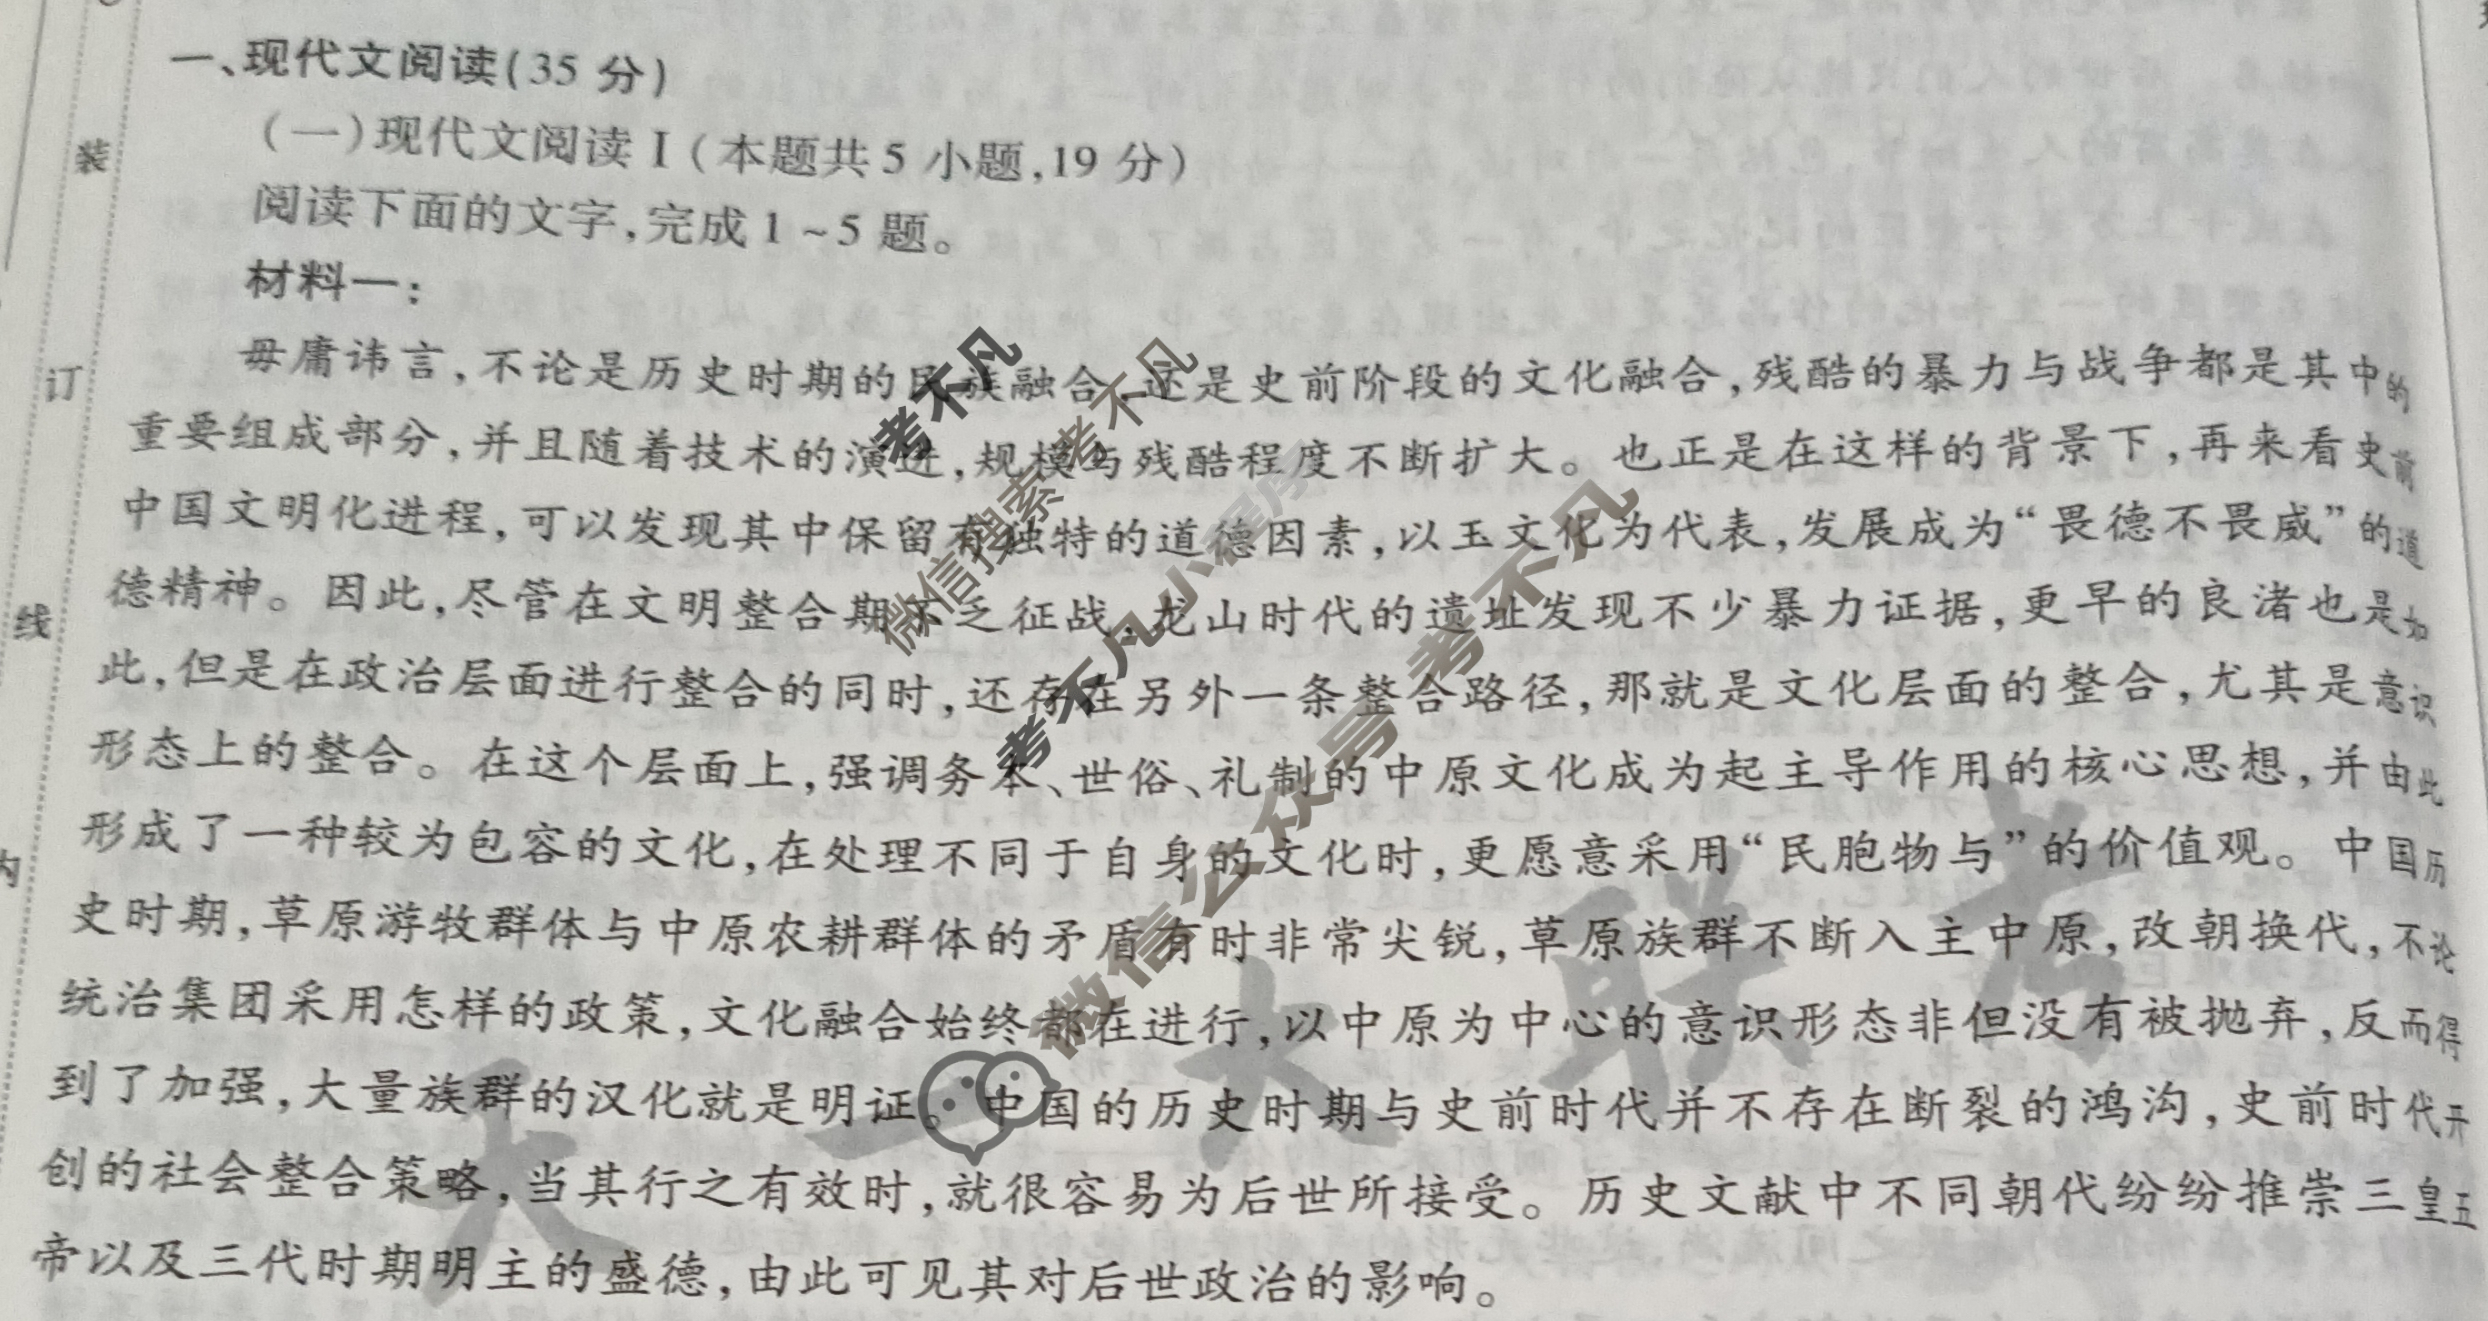 一、现代文阅读(35 分)
(一)现代文阅读 I (本题共 5 小题,19 分)
装
阅读下面的文字,完成 1 ~ 5 题。
材料一:
毋庸讳言,不论是历史时期的民族融合,还是史前阶段的文化融合,残酷的暴力与战争都是其中的
订
重要组成部分,并且随着技术的演进,规模与残酷程度不断扩大。也正是在这样的背景下,再来看史前
中国文明化进程,可以发现其中保留有独特的道德因素,以玉文化为代表,发展成为“畏德不畏威”的道
德精神。因此,尽管在文明整合期不乏征战,龙山时代的遗址发现不少暴力证据,更早的良渚也是如
线
此,但是在政治层面进行整合的同时,还存在另外一条整合路径,那就是文化层面的整合,尤其是意识
形态上的整合。在这个层面上,强调务本、世俗、礼制的中原文化成为起主导作用的核心思想,并由此
形成了一种较为包容的文化,在处理不同于自身的文化时,更愿意采用“民胞物与”的价值观。中国历
史时期,草原游牧群体与中原农耕群体的矛盾有时非常尖锐,草原族群不断入主中原,改朝换代,不论
统治集团采用怎样的政策,文化融合始终都在进行,以中原为中心的意识形态非但没有被抛弃,反而得
到了加强,大量族群的汉化就是明证。中国的历史时期与史前时代并不存在断裂的鸿沟,史前时代开
创的社会整合策略,当其行之有效时,就很容易为后世所接受。历史文献中不同朝代纷纷推崇三皇五
帝以及三代时期明主的盛德,由此可见其对后世政治的影响。
考不凡
微信搜索考不凡
考不凡小程序
微信公众号考不凡
天一大联考